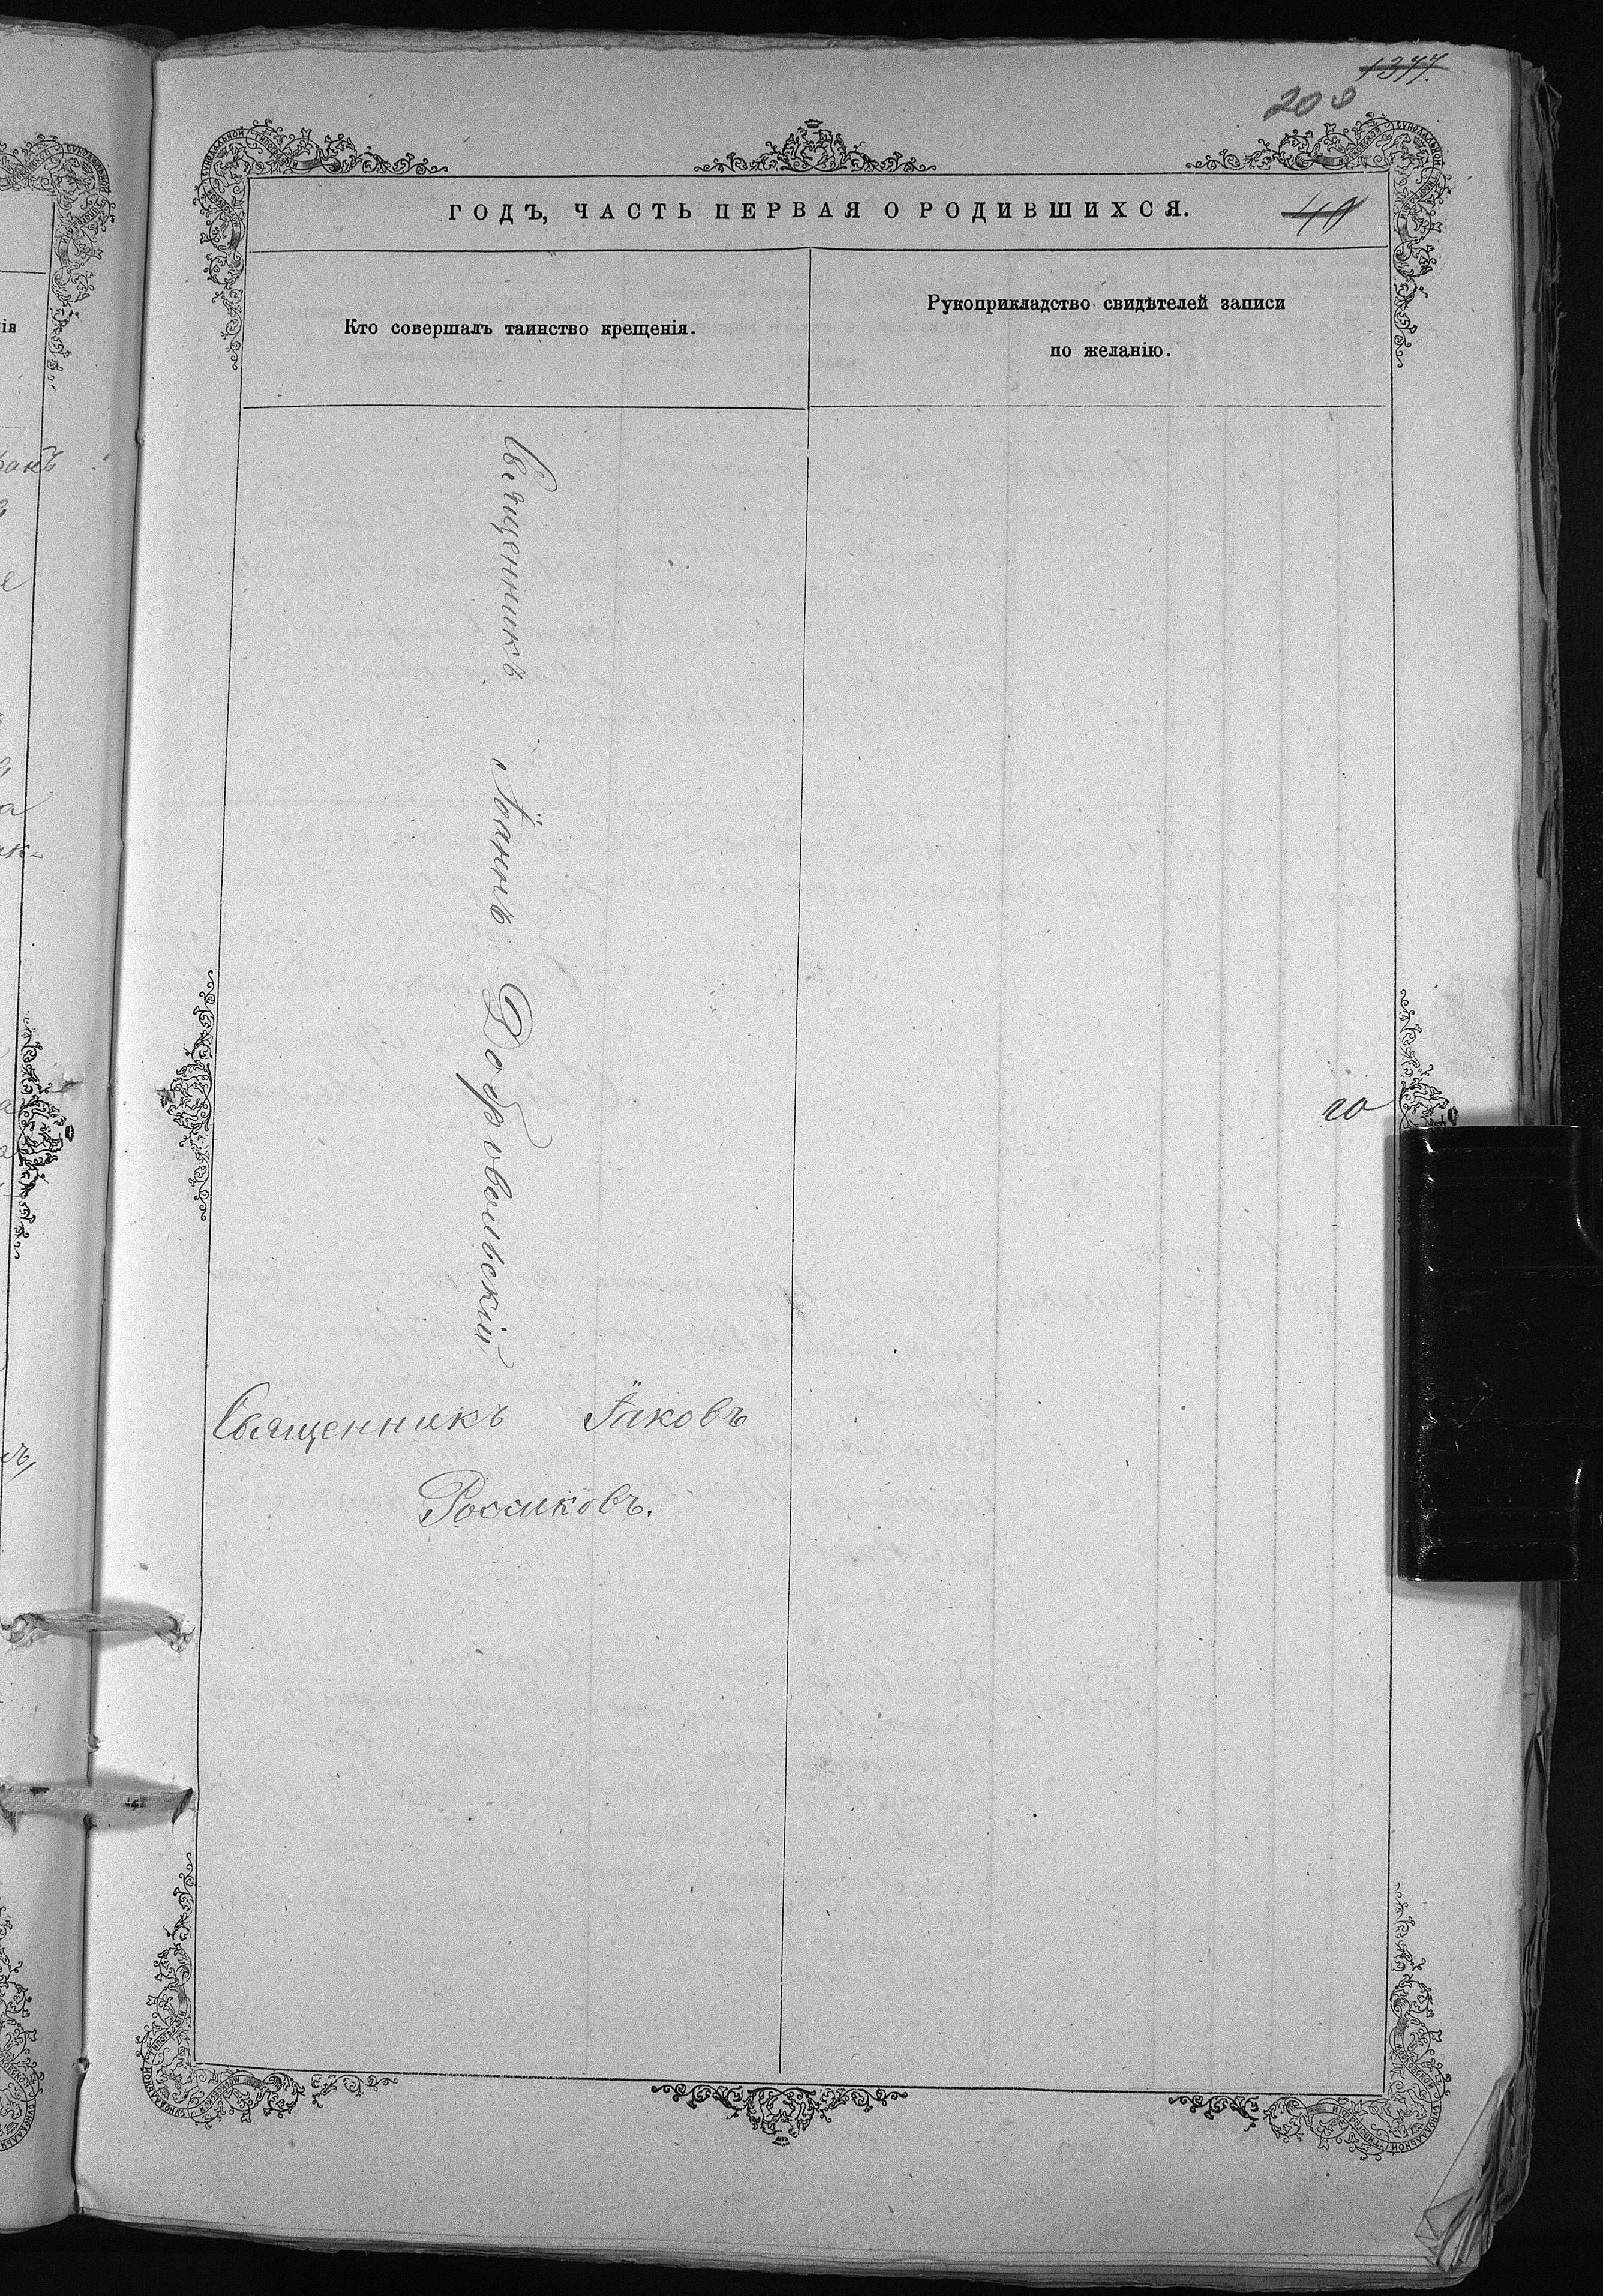 1377.
200
ГОДЪ, ЧАСТЬ ПЕРВАЯ О РОДИВШИХСЯ.
40
Кто совершалъ таинство крещенія.
Рукоприкладство свидѣтелей записи
по желанію.
Священникъ Іоаннъ Добровольскій
20
Священникъ Іаковъ
Россиковъ.